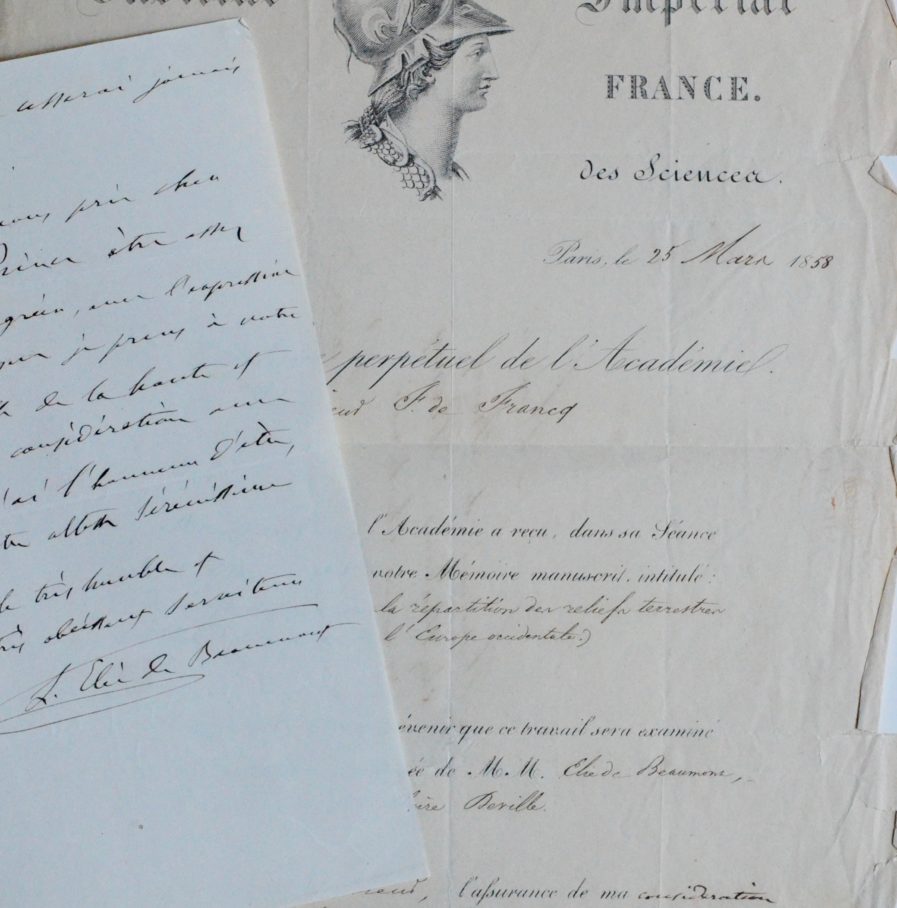 Impérial
FRANCE.
des Sciences.
Paris, le 25 Mars 1858
perpétuel de l'Académie.
F. de Francq
l'Académie a reçu, dans sa Séance
votre Mémoire manuscrit, intitulé:
la répartition des reliefs terrestres
l'Europe occidentale.)
évenir que ce travail sera examiné
ée de M.M. Elie de Beaumont,
Deville.
l'assurance de ma considération
jamais
vous prie
Prince être assez
agréer, avec l'expression
que je prens à votre
de la haute et
considération avec
j'ai l'honneur d'être,
altesse Sérénissime
le très humble et
très obéissant serviteur
L. Elie de Beaumont